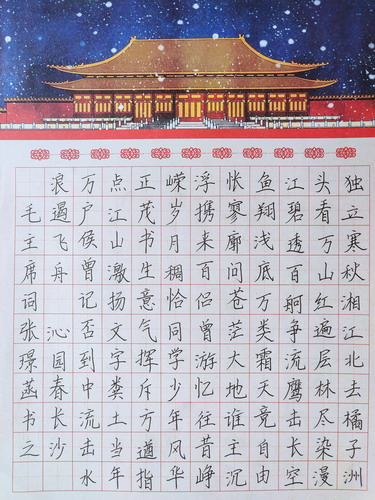 独立寒秋湘江北去橘子洲
头看万山红遍层林尽染漫
江碧透百舸争流鹰击长空
鱼翔浅底万类霜天竞自由
怅寥廓问苍茫大地谁主沉
浮携来百侣曾游忆往昔峥
嵘岁月稠恰同学少年风华
正茂书生意气挥斥方遒指
点江山激扬文字粪土当年
万户侯曾记否到中流击水
浪遏飞舟 沁园春长沙
毛主席词张璟菡书之